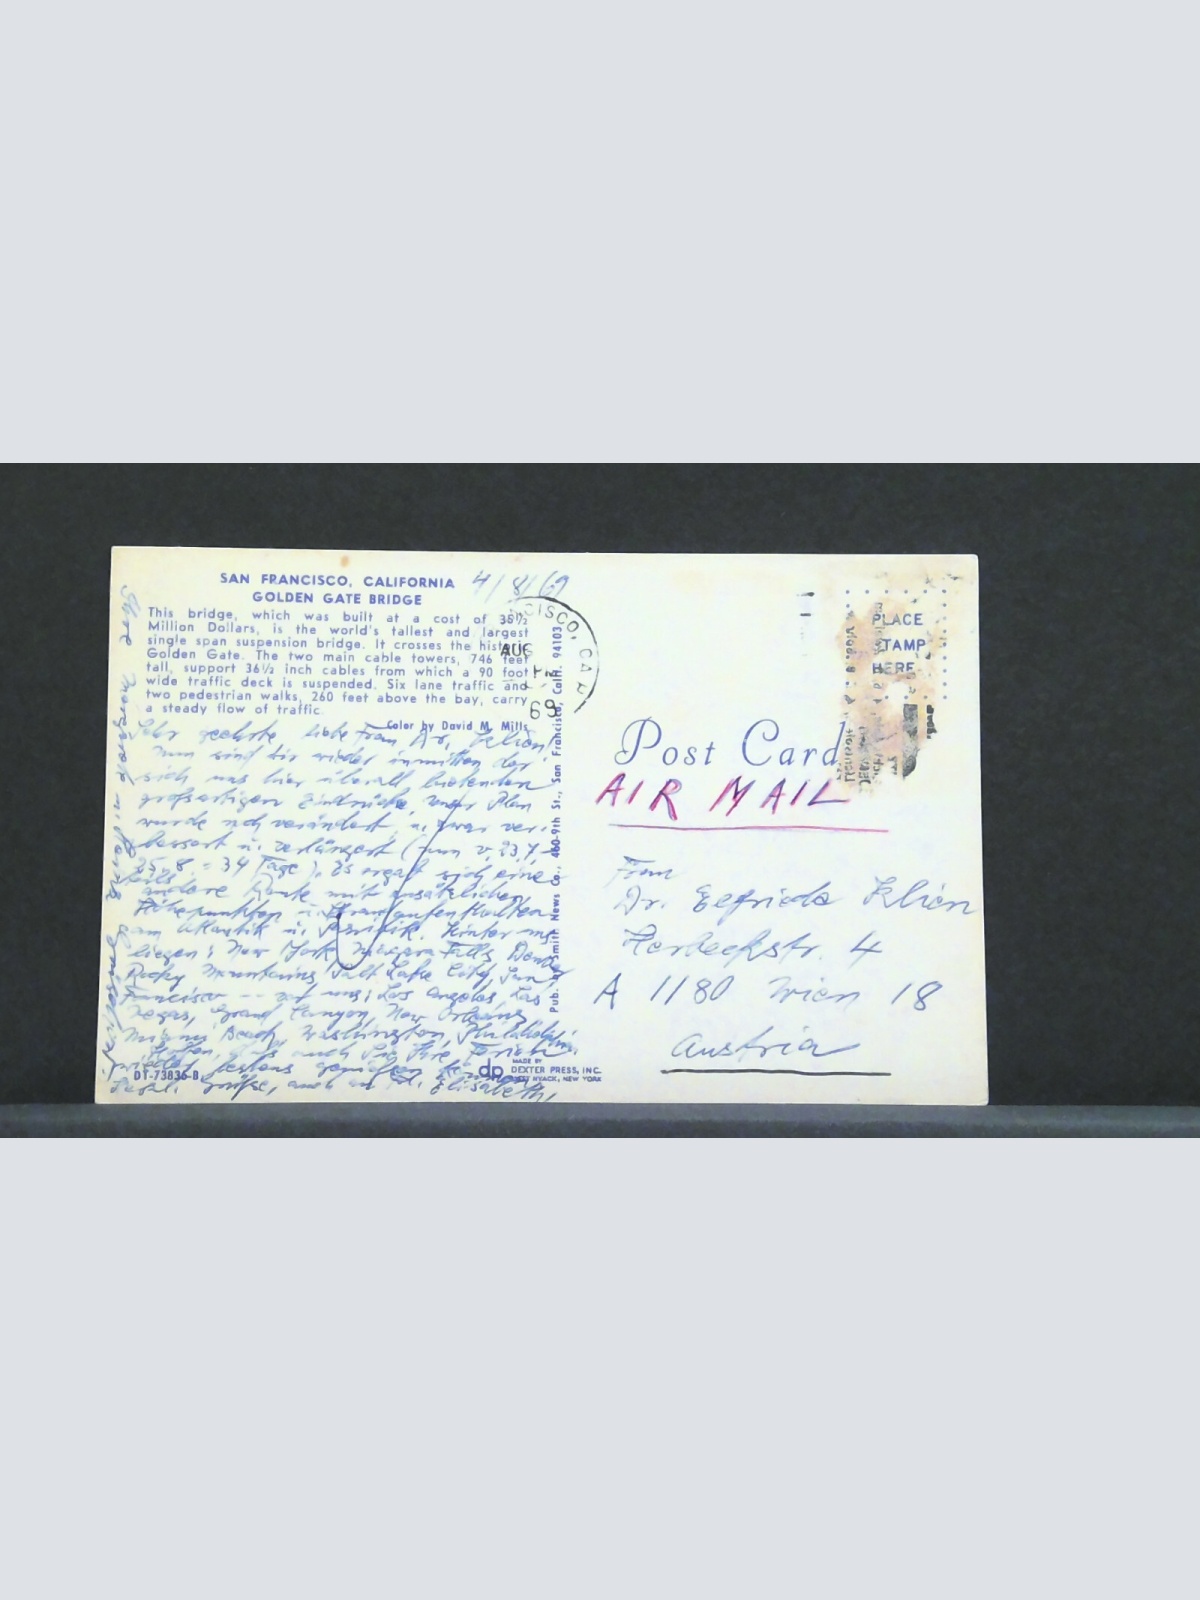 SAN FRANCISCO, CALIFORNIA
GOLDEN GATE BRIDGE
4/8/69
This bridge, which was built at a cost of 35½
Million Dollars, is the world's tallest and largest
single span suspension bridge. It crosses the historic
Golden Gate. The two main cable towers, 746 feet
tall, support 36½ inch cables from which a 90 foot
wide traffic deck is suspended. Six lane traffic and
two pedestrian walks, 260 feet above the bay, carry
a steady flow of traffic.
Color by David M. Mills
CISCO, CA
AUG
69
Sehr geehrte liebe Frau Dr.
Nun sind wir wieder inmitten der
sich uns hier überall bietenden
großartigen Eindrücke, unser Plan
wurde noch verändert, u. zwar ver-
bessert u. verlängert (zum v. 23.7.
25.8. = 34 Tage). Es ergab sich eine
andere Route mit zusätzlichen
Höhepunkten u. Strandaufenthalten
am Atlantik u. Pazifik. Hinter uns
liegen: New York, Niagara Falls, Denver
Rocky Mountains, Salt Lake City, San
Francisco -- vor uns: Los Angeles, Las
Vegas, Grand Canyon, New Orleans,
Miami Beach, Washington, Philadelphia.
Hoffen, daß auch Sie Ihre Ferien
bestens genießen
Grüße, auch an Elisabeth,
DT-73836-B
Pub. by Smith News Co., 460-9th St., San Francisco, Calif. 94103
MADE BY
dp DEXTER PRESS, INC.
WEST NYACK, NEW YORK
PLACE
STAMP
HERE
Post Card
AIR MAIL
Frau
Dr. Elfrieda
Herbeckstr. 4
A 1180 Wien 18
Austria